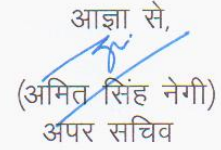 आज्ञा से,
(अमित सिंह नेगी)
अपर सचिव